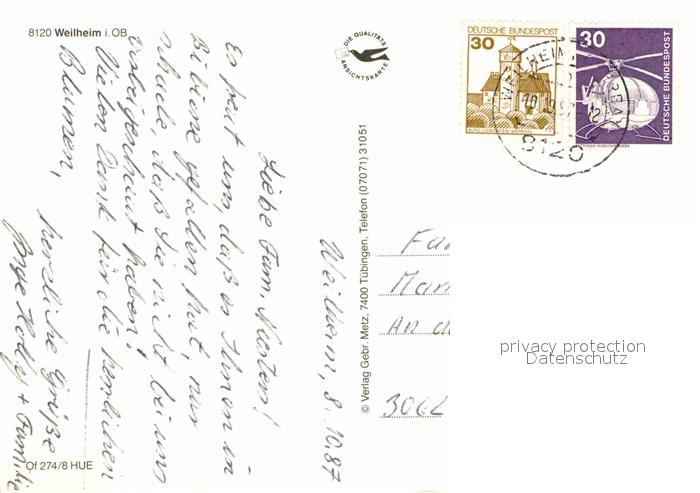 8120 Weilheim i. OB
DIE QUALITÄTS
ANSICHTSKARTE
DEUTSCHE BUNDESPOST
30
30
DEUTSCHE BUNDESPOST
8120
Weilheim, 8.10.87
Liebe Fam.
Es freut uns, daß es Ihnen in
gefallen hat, nur
schade, daß Sie nicht bei uns
haben!
Vielen Dank für die herrlichen
Blumen,
herzliche Grüße
+ Familie
© Verlag Gebr. Metz, 7400 Tübingen, Telefon (07071) 31051
Fa
Mar
An d
306
privacy protection
Datenschutz
Of 274/8 HUE